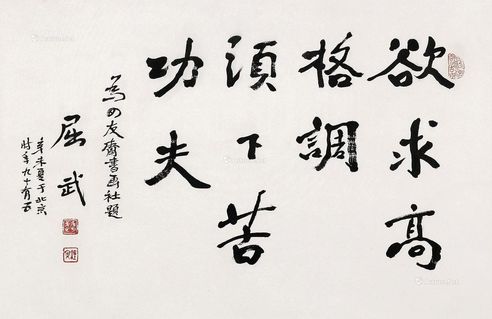 欲求高
格調
須下苦
功夫
為四友齋書画社題
屈武
辛未夏于北京
時年九十有五